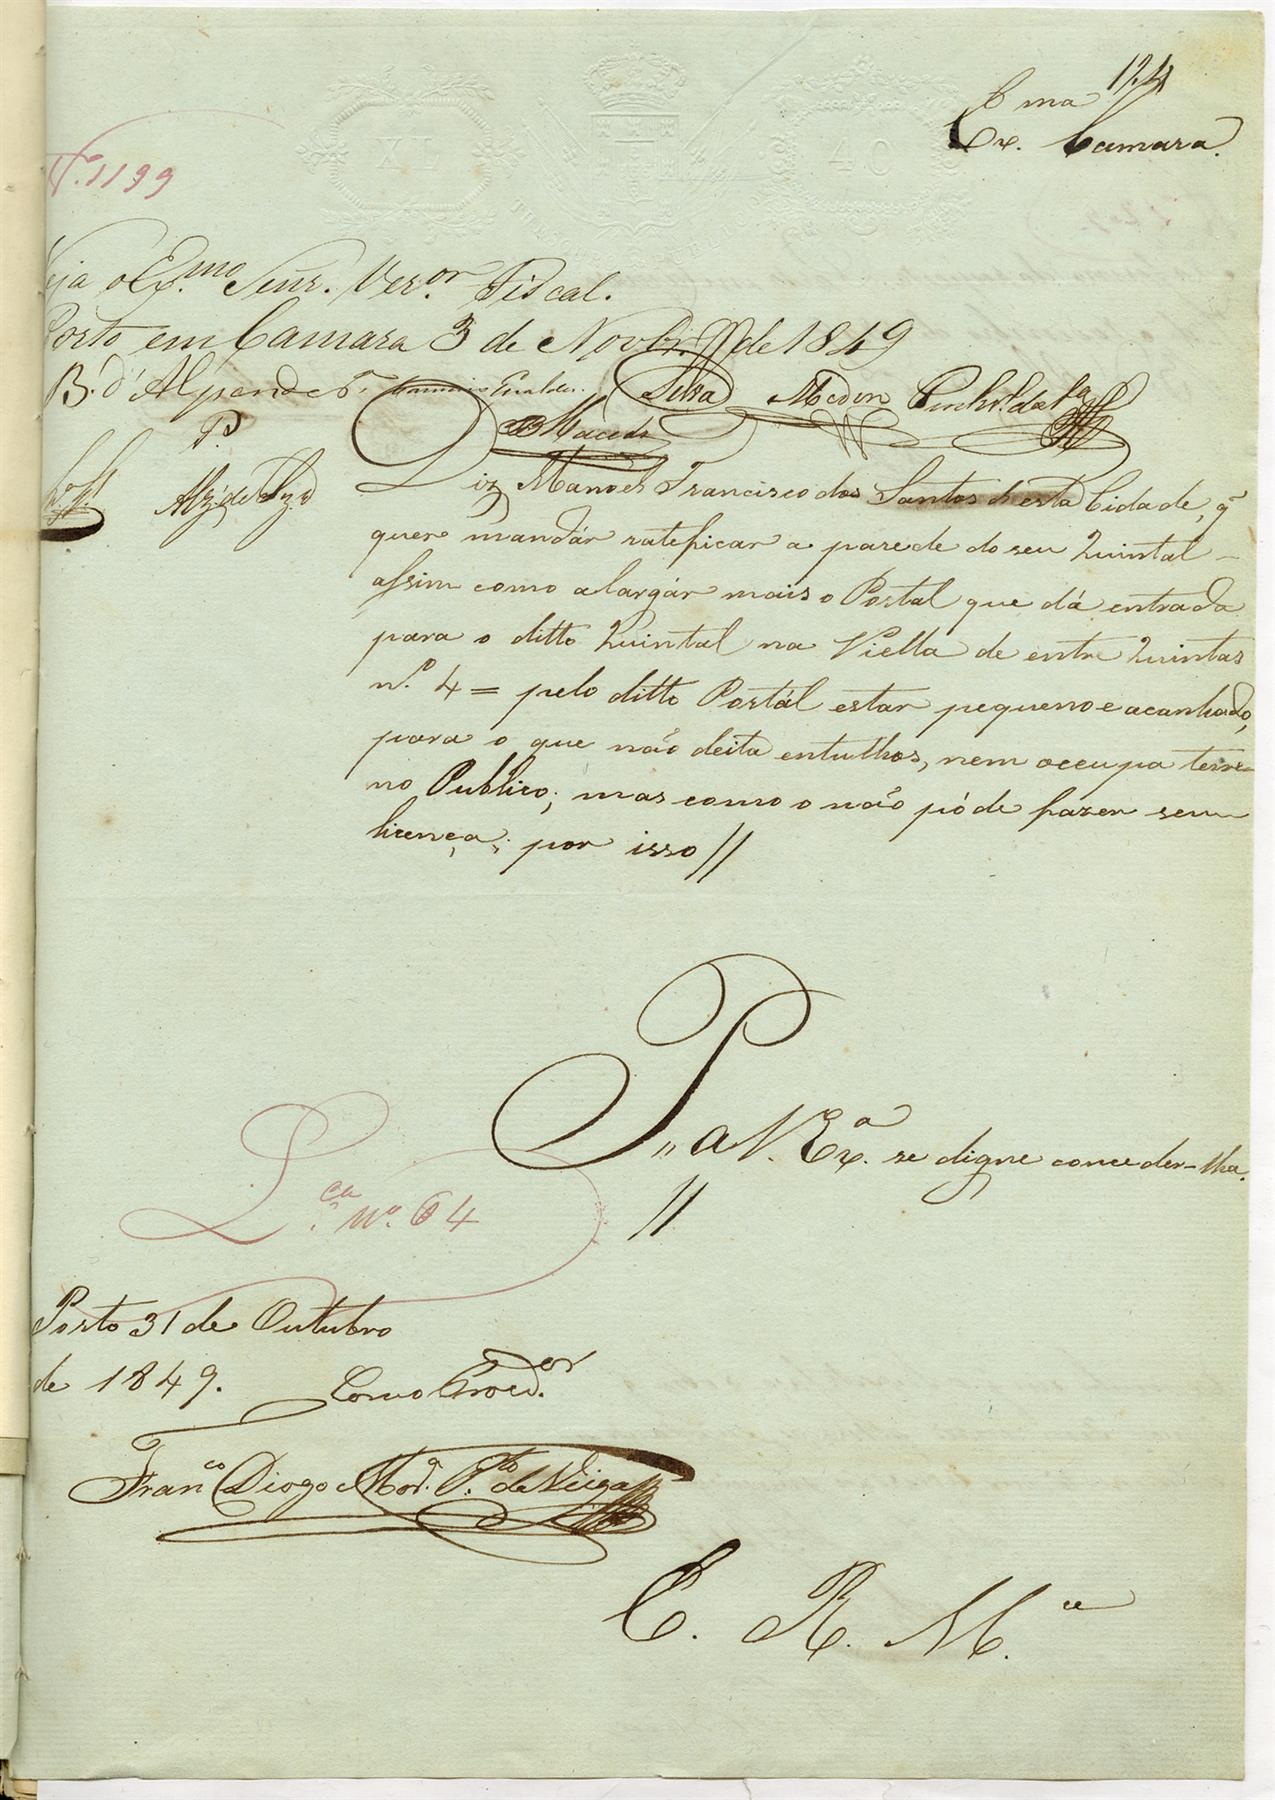 124
Exma Camara.
N.º 1199
Veja o Ex.mo Senr. Ver.or Fiscal.
Porto em Camara 3 de Novbr.º de 1849
B. d'Alpendr.
Silva
Macedo
P.
Diz Manoel Francisco dos Santos desta Cidade, q̃
quer mandár rateficar a parede do seu Quintal
assim como alargár mais o Postal que dá entrada
para o ditto Quintal na Viella de entre Quintas
n.º 4 = pelo ditto Postál estar pequeno e acanhado,
para o que não deita entulhos, nem occupa terre-
no Publico; mas como o não póde fazer sem
licença; por isso //
P,, a V. Ex.ª se digne conceder-lha.
//
L.ca Nº. 64
Porto 31 de Outubro
de 1849.
Como Procd.or
Fran.co Diogo P.to de Veiga
E. R. M.ce